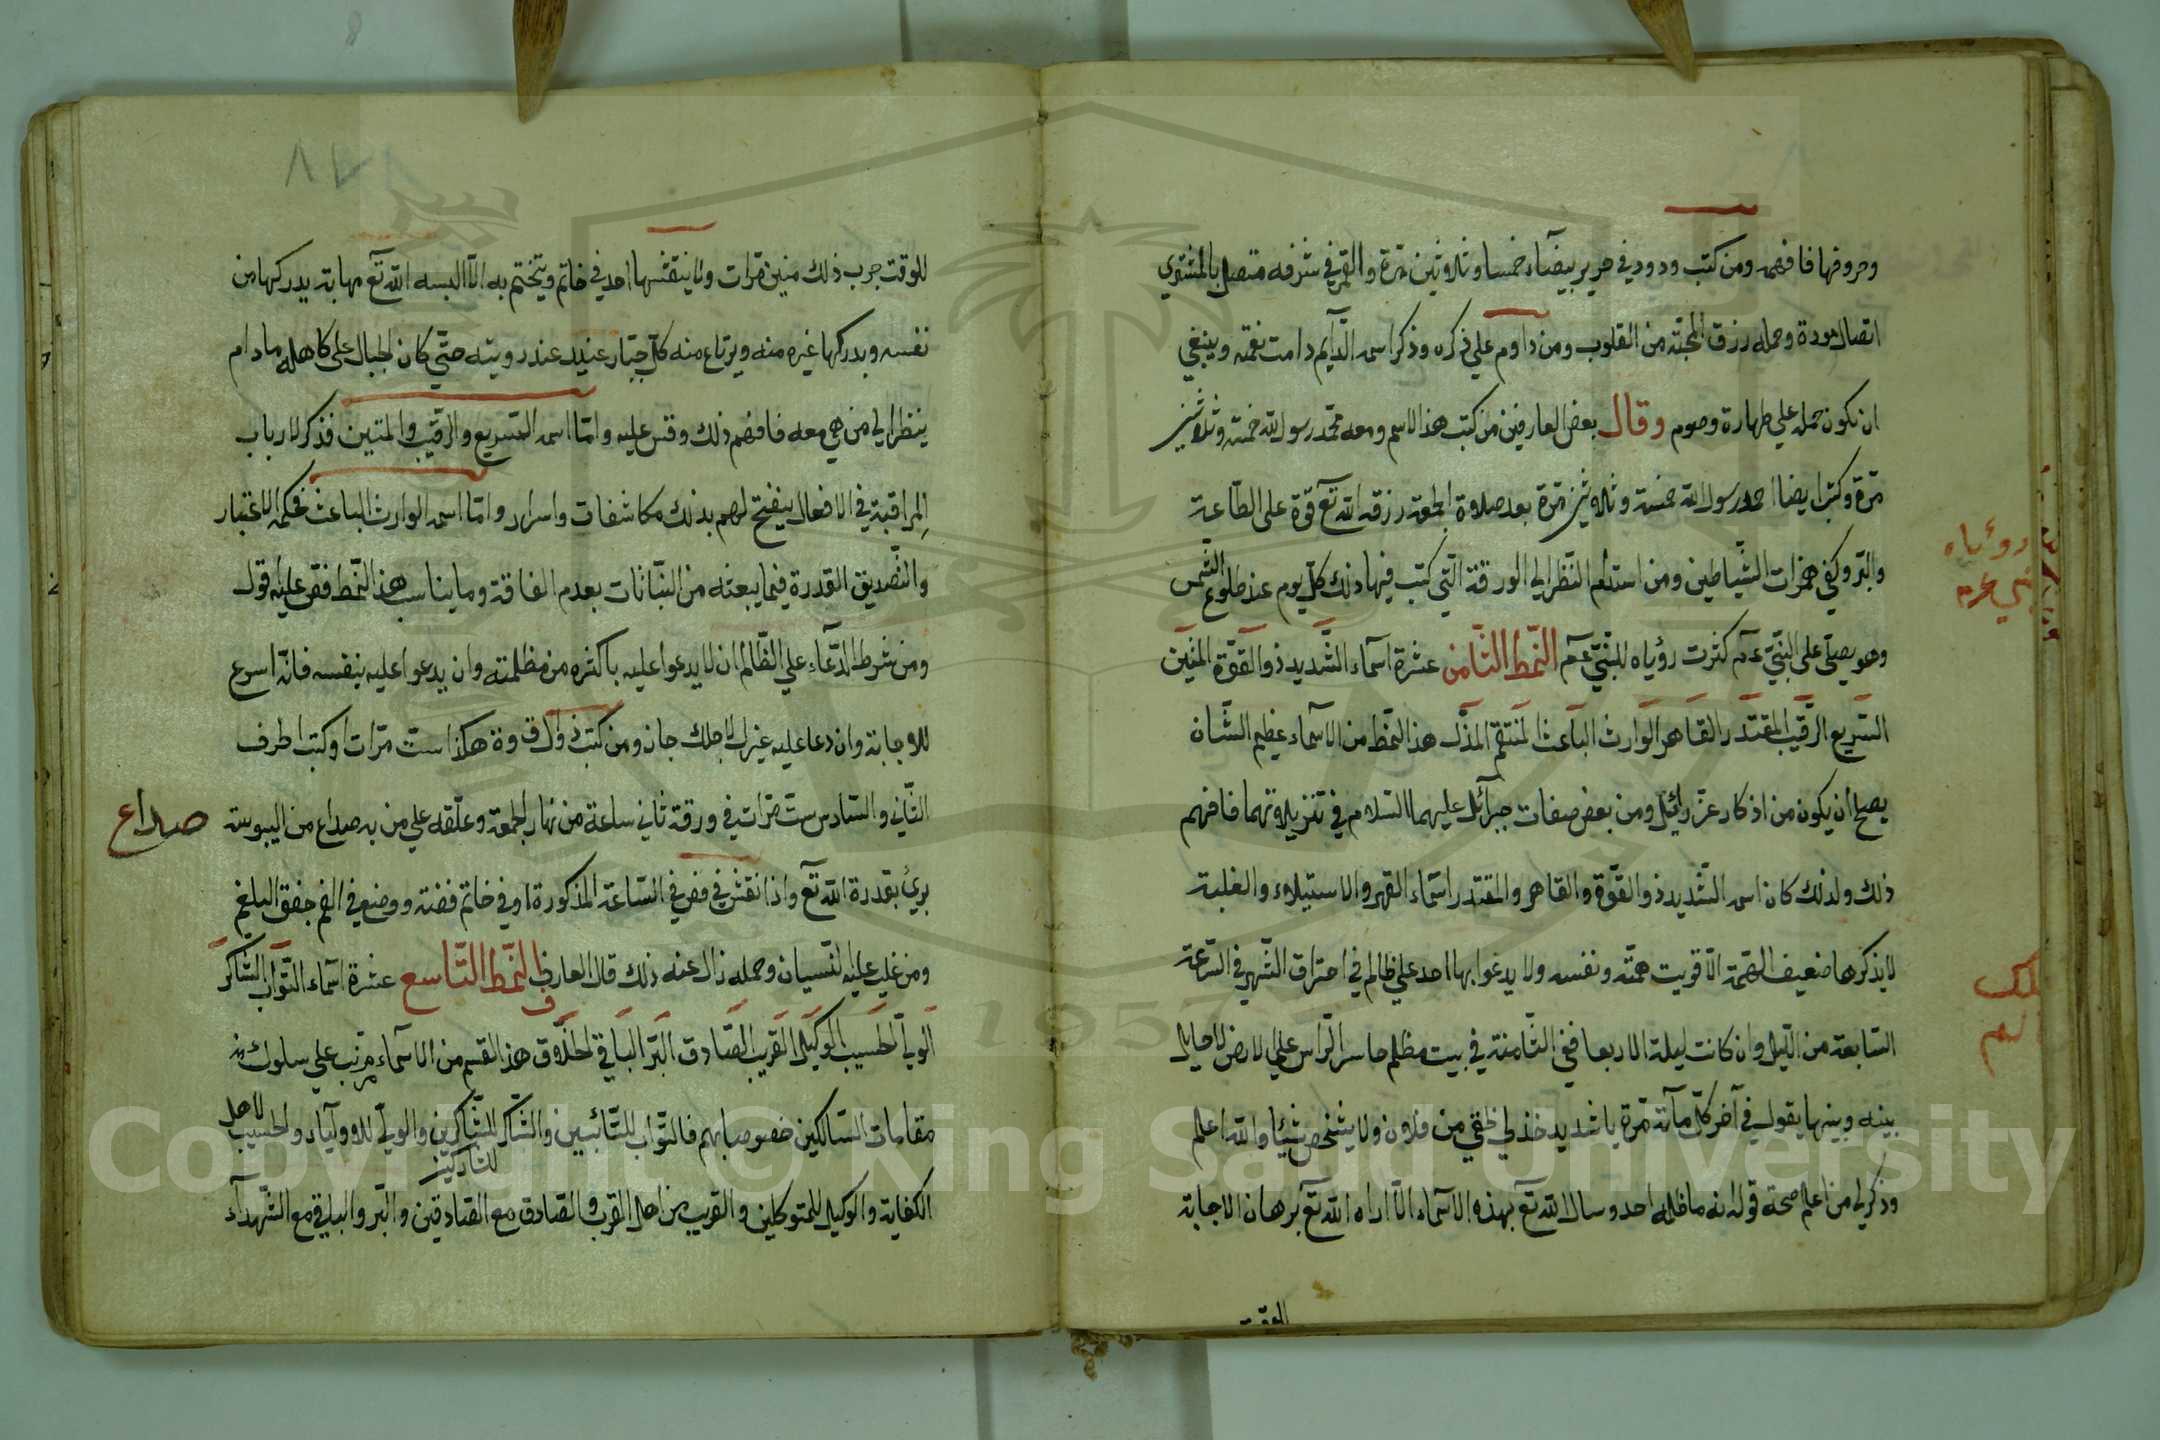 وحروفها فافهمه ومن كتب ودود في حرير بيضاء خمسا وثلاثين مرة والقمر في شرفه متصل بالمشتري
اتصال مودة وحمله رزق المحبّة من القلوب ومن داوم على ذكره وذكر اسمه الدّآيم دامت نعمته وينبغي
ان تكون حمله على طهارة وصوم وقال بعض العارفين من كتب هذا الاسم ومعه محمّد رسول الله خمسة وثلاثين
مرّة وكتب ايضا احمد رسول الله خمسة وثلاثين مرّة بعد صلاة الجمعة رزقه الله تعٓ قوة على الطّاعة
والبّر وكفي همزات الشّياطين ومن استدام النّظر الى الورقة الّتي كتب فيها ذلك كلّ يوم عند طلوع الشّمس
وهو يصلّي على النّبيّ عٓم كثرت رؤياه للنّبيّ عٓم النّمط الثّامن عشرة اسمآء الشّديد ذو القوّة المتين
السّريع الرّقيب المقتدر القاهر الوارث الباعث المنتقم المذلّ هذا النّمط من الاسمآء عظيم الشّان
يصلح ان يكون من اذكار عزرائيل ومن بعض صفات جبرائل عليهما السّلام في تنزيلاتهما فافهم
ذلك ولذلك كان اسمه الشّديد ذو القوّة والقاهر والمقتدر اسمآء القهر والاستيلاء والغلبة
لا يذكرها ضعيف الهمّة الّا قويت همّته ونفسه ولا يدعوا بها احد على ظالم في احتراق الشّهر في السّاعة
السّابعة من اللّيل وان كانت ليلة الاربعا ففي الثّامنة في بيت مظلم حاسر الرّاس على الارض لا حايل
بينه وبينها يقول في آخر كلّ مآئة مرّة يا شديد خذ لي حقّي من فلان ولا يشخص شيئا والله اعلم
وذكر لي من اعلم صحة قوله انه ما ظلمه احد وسال الله تعٓ بهذه الاسمآء الّا اراه الله تعٓ برهان الاجابة
للوقت
رؤياه
نبي محرم
للوقت جرب ذلك مرّات ولا ينقشها احد في خاتم ويتختم به الّا البسه الله تعٓ مهابة يدركها من
نفسه ويدركها غيره منه ويرتاع منه كلّ جبّار عنيد عند رويته حتّى كان الجبال على كاهله مادام
ينظر الى من هي معه فافهم ذلك وقس عليه وامّا اسمه السّريع والرّقيب والمتين فذكر لارباب
المراقبة في الافعال ينفتح لهم بذلك مكاشفات واسرار وامّا اسمه الوارث الباعث فحكمه الاعتبار
والتّصديق القدرة فيما يبعثه من النّباتات بعدم الفاقة وما يناسب هذا النّمط فقس عليه قوله
ومن شرط الدّعاء على الظّالم ان لا يدعوا عليه باكثره من مظلمته وان يدعوا عليه بنفسه فانّه اسرع
للاجابة وان دعا عليه غيرك لاجلك جاز ومن كتب ذو ال ق وة هكذا ستّ مرّات او كتب اطرف
الثّاني والسّادس ستّ مرّات في ورقة ثاني ساعة من نهار الجمعة وعلّقه على من به صداع من اليبوسة
صداع
برئ بقدرة الله تعٓ واذا نقش في فص في السّاعة المذكورة او في خاتم فضّة ووضع في الفم جفف البلغم
ومن غلب عليه النّسيان وحمله زال عنه ذلك قال العارف النّمط التّاسع عشرة اسمآء التّوّاب الشّاكر
الوليّ الحسيب الوكيل القريب الصّادق البّر الباقي الخلّاق هذا القسم من الاسمآء مرتب على سلوك
مقامات السّالكين خصوصا بهم فالتّواب للتّائبين والشّاكر للشّاكرين والوليّ للاوليآء والحسيب لاهل
الكفاية والوكيل للمتوكلين والقريب من اهل القرب والصّادق مع الصّادقين والبّر والباقي مع الشّهدآء